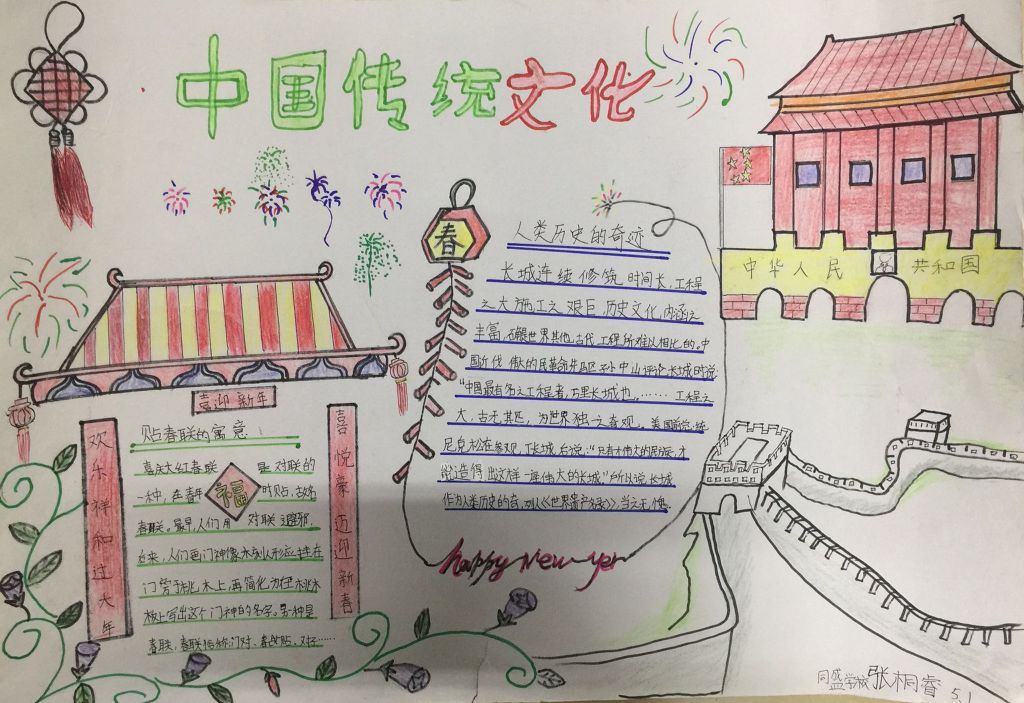 中国传统文化
春
人类历史的奇迹
长城连续修筑时间长,工程
之大施工之艰巨,历史文化,内涵之
丰富,世界其他古代工程所难以相比的。中
国近代伟大的民革命先驱孙中山评论长城时说:
“中国最有名之工程者,万里长城也。……工程之
大,古无其匹,为世界独一之奇观。美国前总统
尼克松在参观了长城后说:“只有大伟大的民族,才
能造得出这样一座伟大的长城”所以说长城
作为人类历史的奇,列入《世界遗产名录》当之无愧
happy New yer
中华人民 共和国
喜迎新年
欢乐祥和过大年
喜悦豪迈迎新春
贴春联的寓意:
喜庆大红春联 是对联的
一种,在春年 时贴,故名
福
春联。最早人们用 对联避邪。
后来,人们画门神像木刻人形应挂在
门旁于桃木上,再简化为在桃木
板上写出这个门神的名字。另一种是
春联,春联俗称门对、春贴、对
同盛学校 张桐睿 5.1